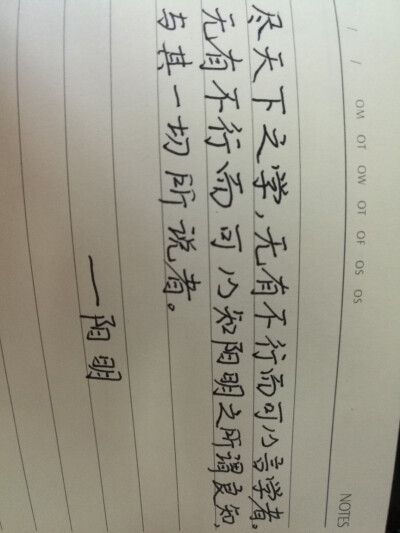 NOTES
/ / OM OT OW OT OF OS OS
尽天下之学,无有不行而可以言学者。
无有不行而可以知阳明之所谓良知,
与其一切所说者。
——阳明